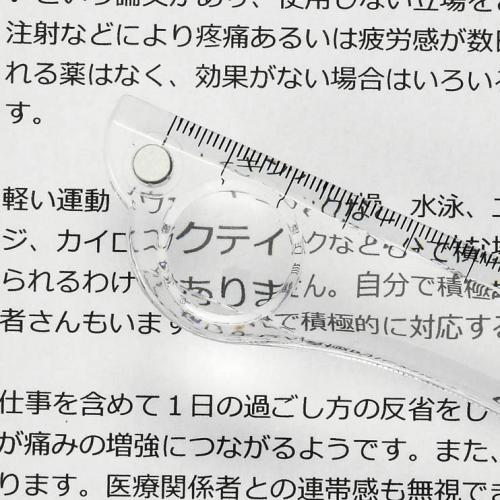 注射などにより疼痛あるいは疲労感が数
れる薬はなく、効果がない場合はいろい
す。
軽い運動 水泳、
ジ、カイロ クティ クなども で積極
られるわけ ありま ん。自分で積極
者さんもいます で積極的に対応する
仕事を含めて1日の過ごし方の反省をし
が痛みの増強につながるようです。また、
ります。医療関係者との連帯感も無視でき